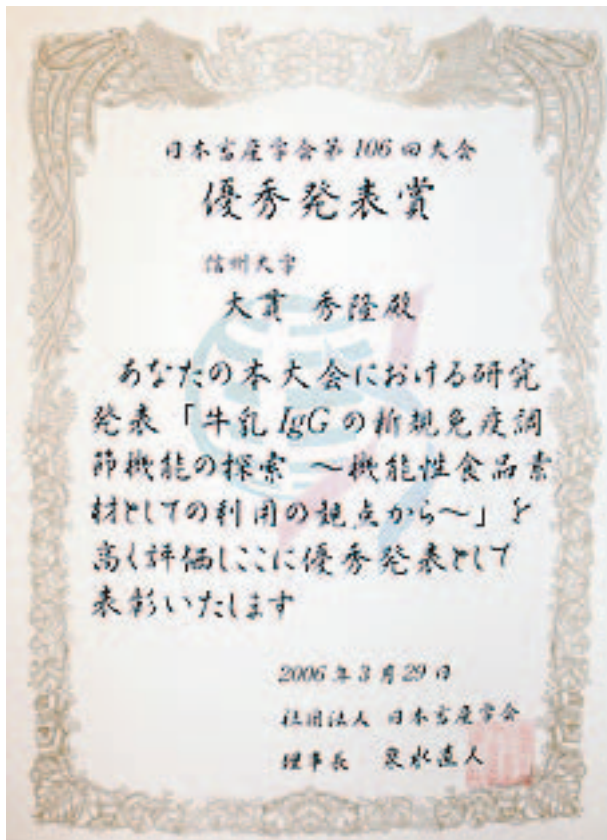 日本畜産学会第106回大会
優秀発表賞
信州大学
大貫 秀隆殿
あなたの本大会における研究
発表「牛乳IgGの新規免疫調
節機能の探索 〜機能性食品素
材としての利用の観点から〜」を
高く評価しここに優秀発表として
表彰いたします
2006年3月29日
社団法人 日本畜産学会
理事長 泉水直人